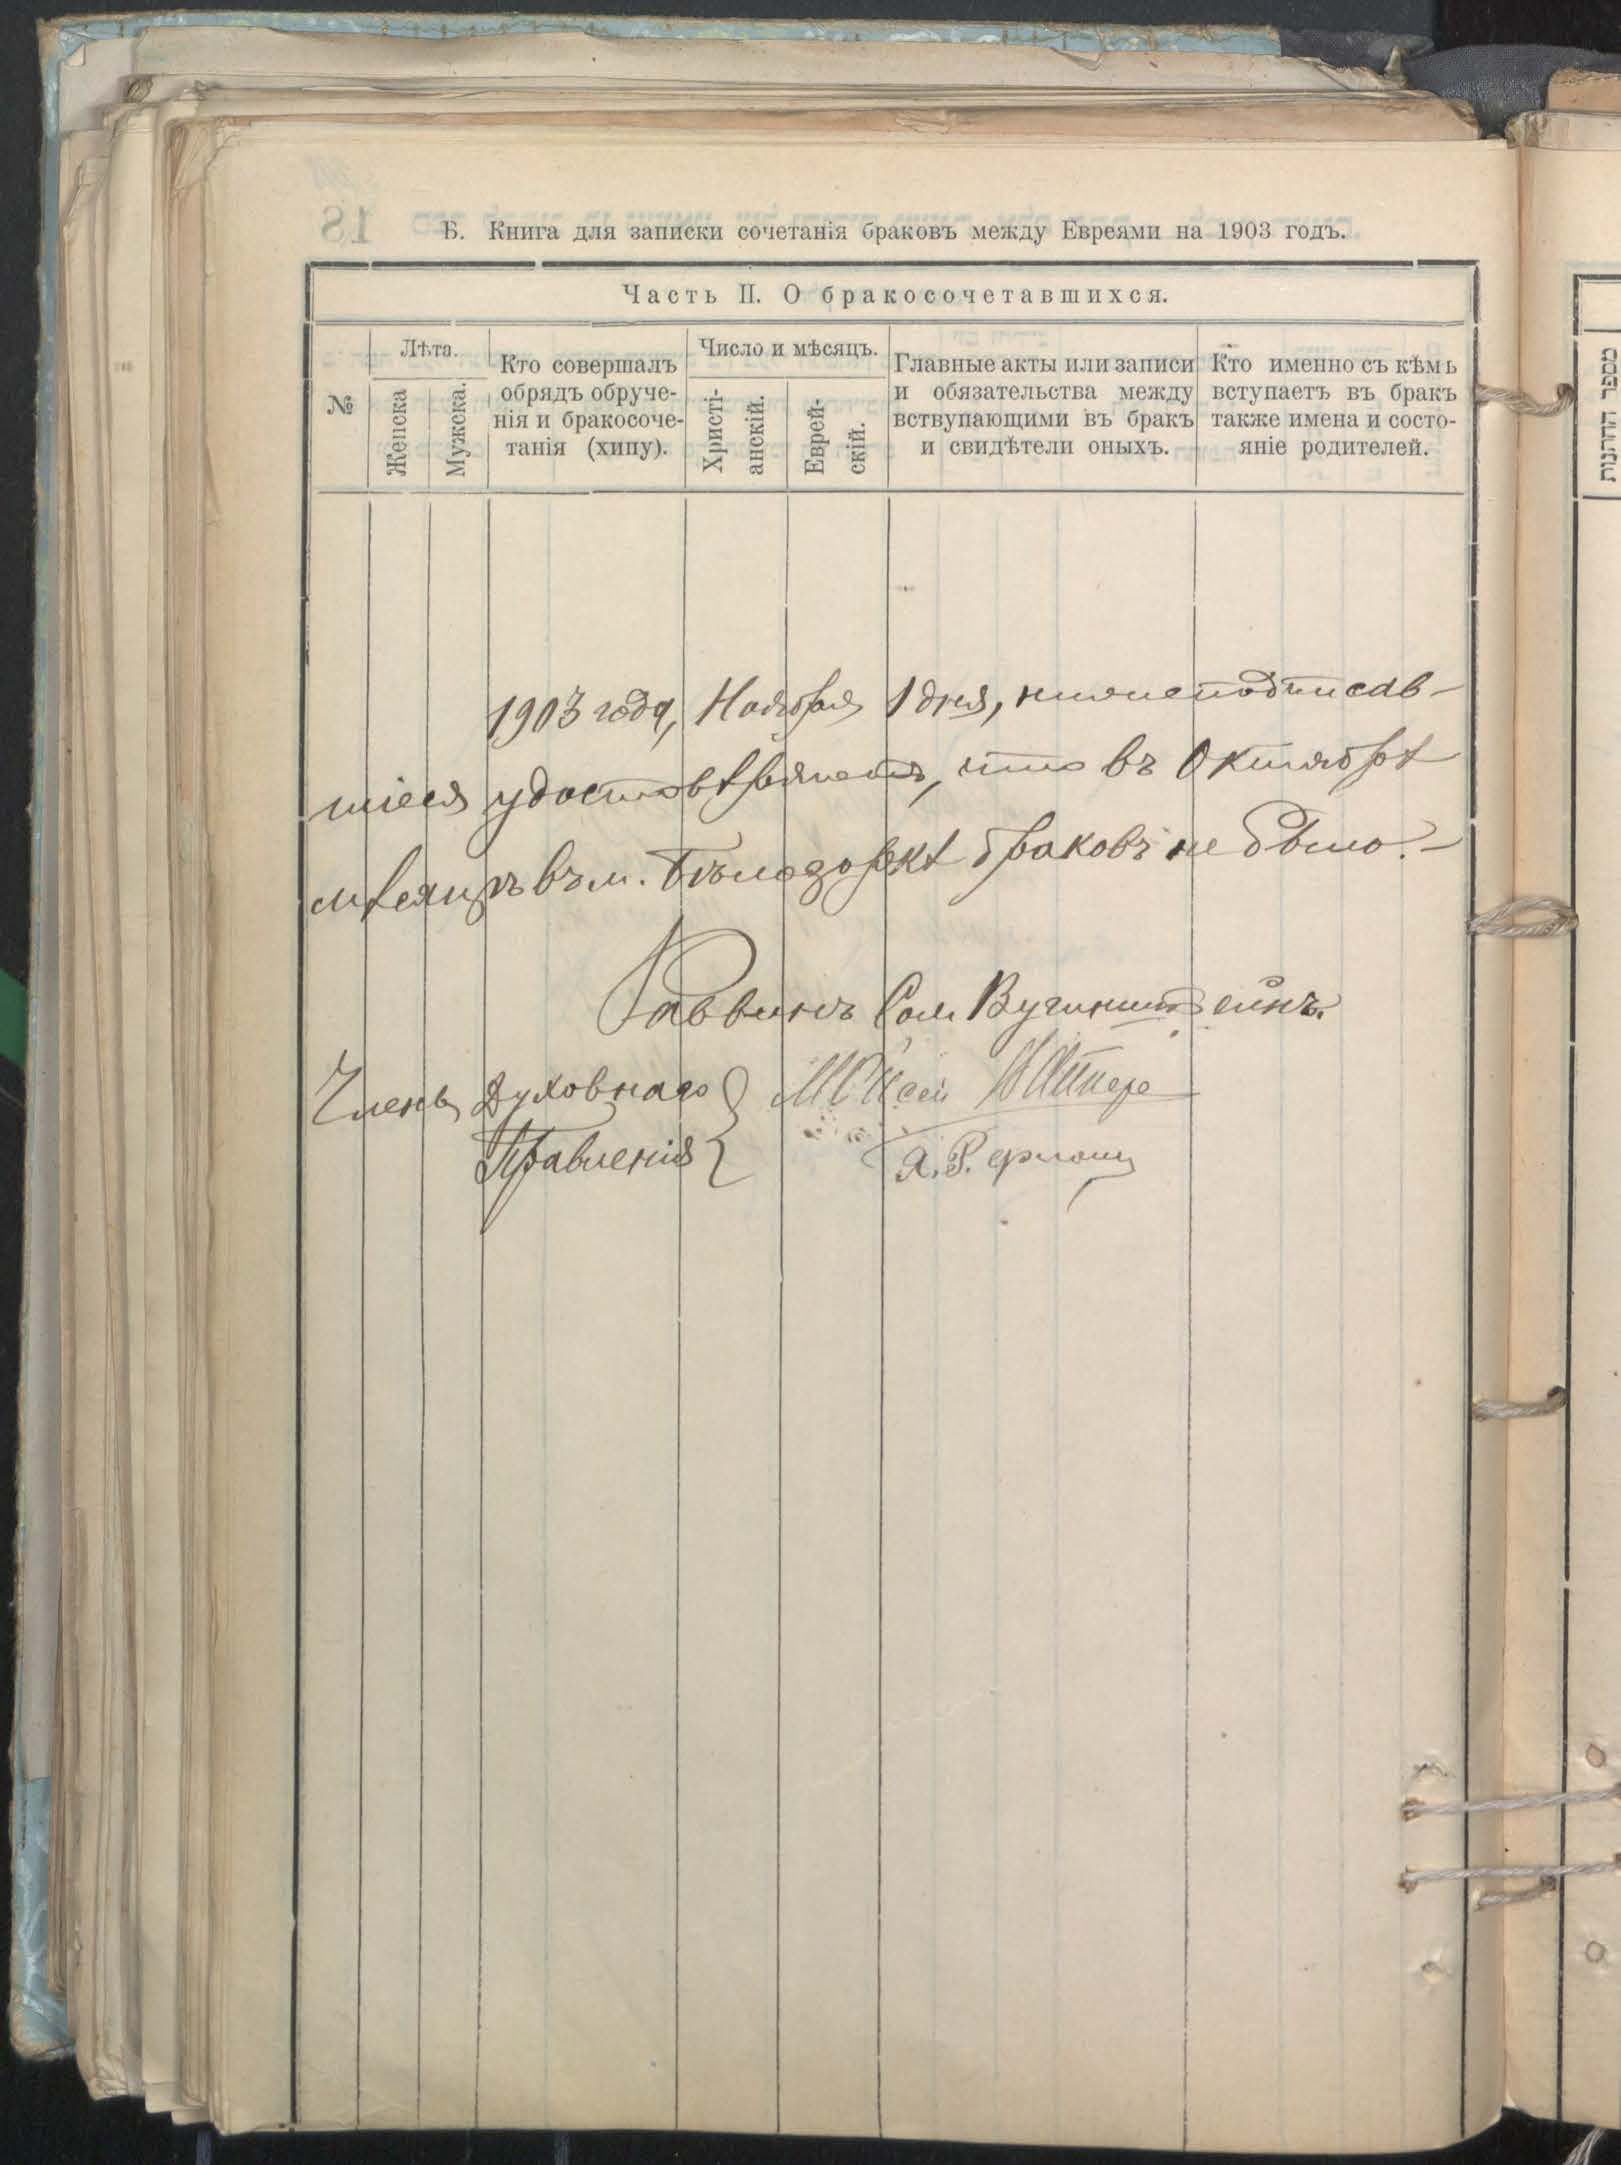 Б. Книга для записки сочетанія браковъ между Евреями на 1903 годъ.
Часть II. О бракосочетавшихся.
№
Лѣта.
Женска
Мужска.
Кто совершалъ
обрядъ обруче-
нія и бракосоче-
танія (хипу).
Число и мѣсяцъ.
Христі-
анскій.
Еврей-
скій.
Главные акты или записи
и обязательства между
вствупающими въ бракъ
и свидѣтели оныхъ.
Кто именно съ кѣмъ
вступаетъ въ бракъ
также имена и состо-
яніе родителей.
1903 года, Ноября 1 дня, нижеподписав-
шіеся удостовѣряетъ, что въ Октябрѣ
мѣсяцѣ въ м. Бѣлозоркѣ браковъ не было.-
Раввинъ Сол.
Члены Духовнаго
Правленія
Мойсей
Я.
מספר החתונות